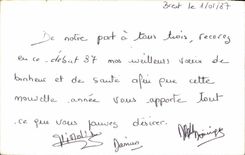 Brest le 1/01/87
De notre part à tous trois, recevez
en ce début 87 nos meilleurs vœux de
bonheur et de santé afin que cette
nouvelle année vous apporte tout
ce que vous pouvez désirer.
Damien